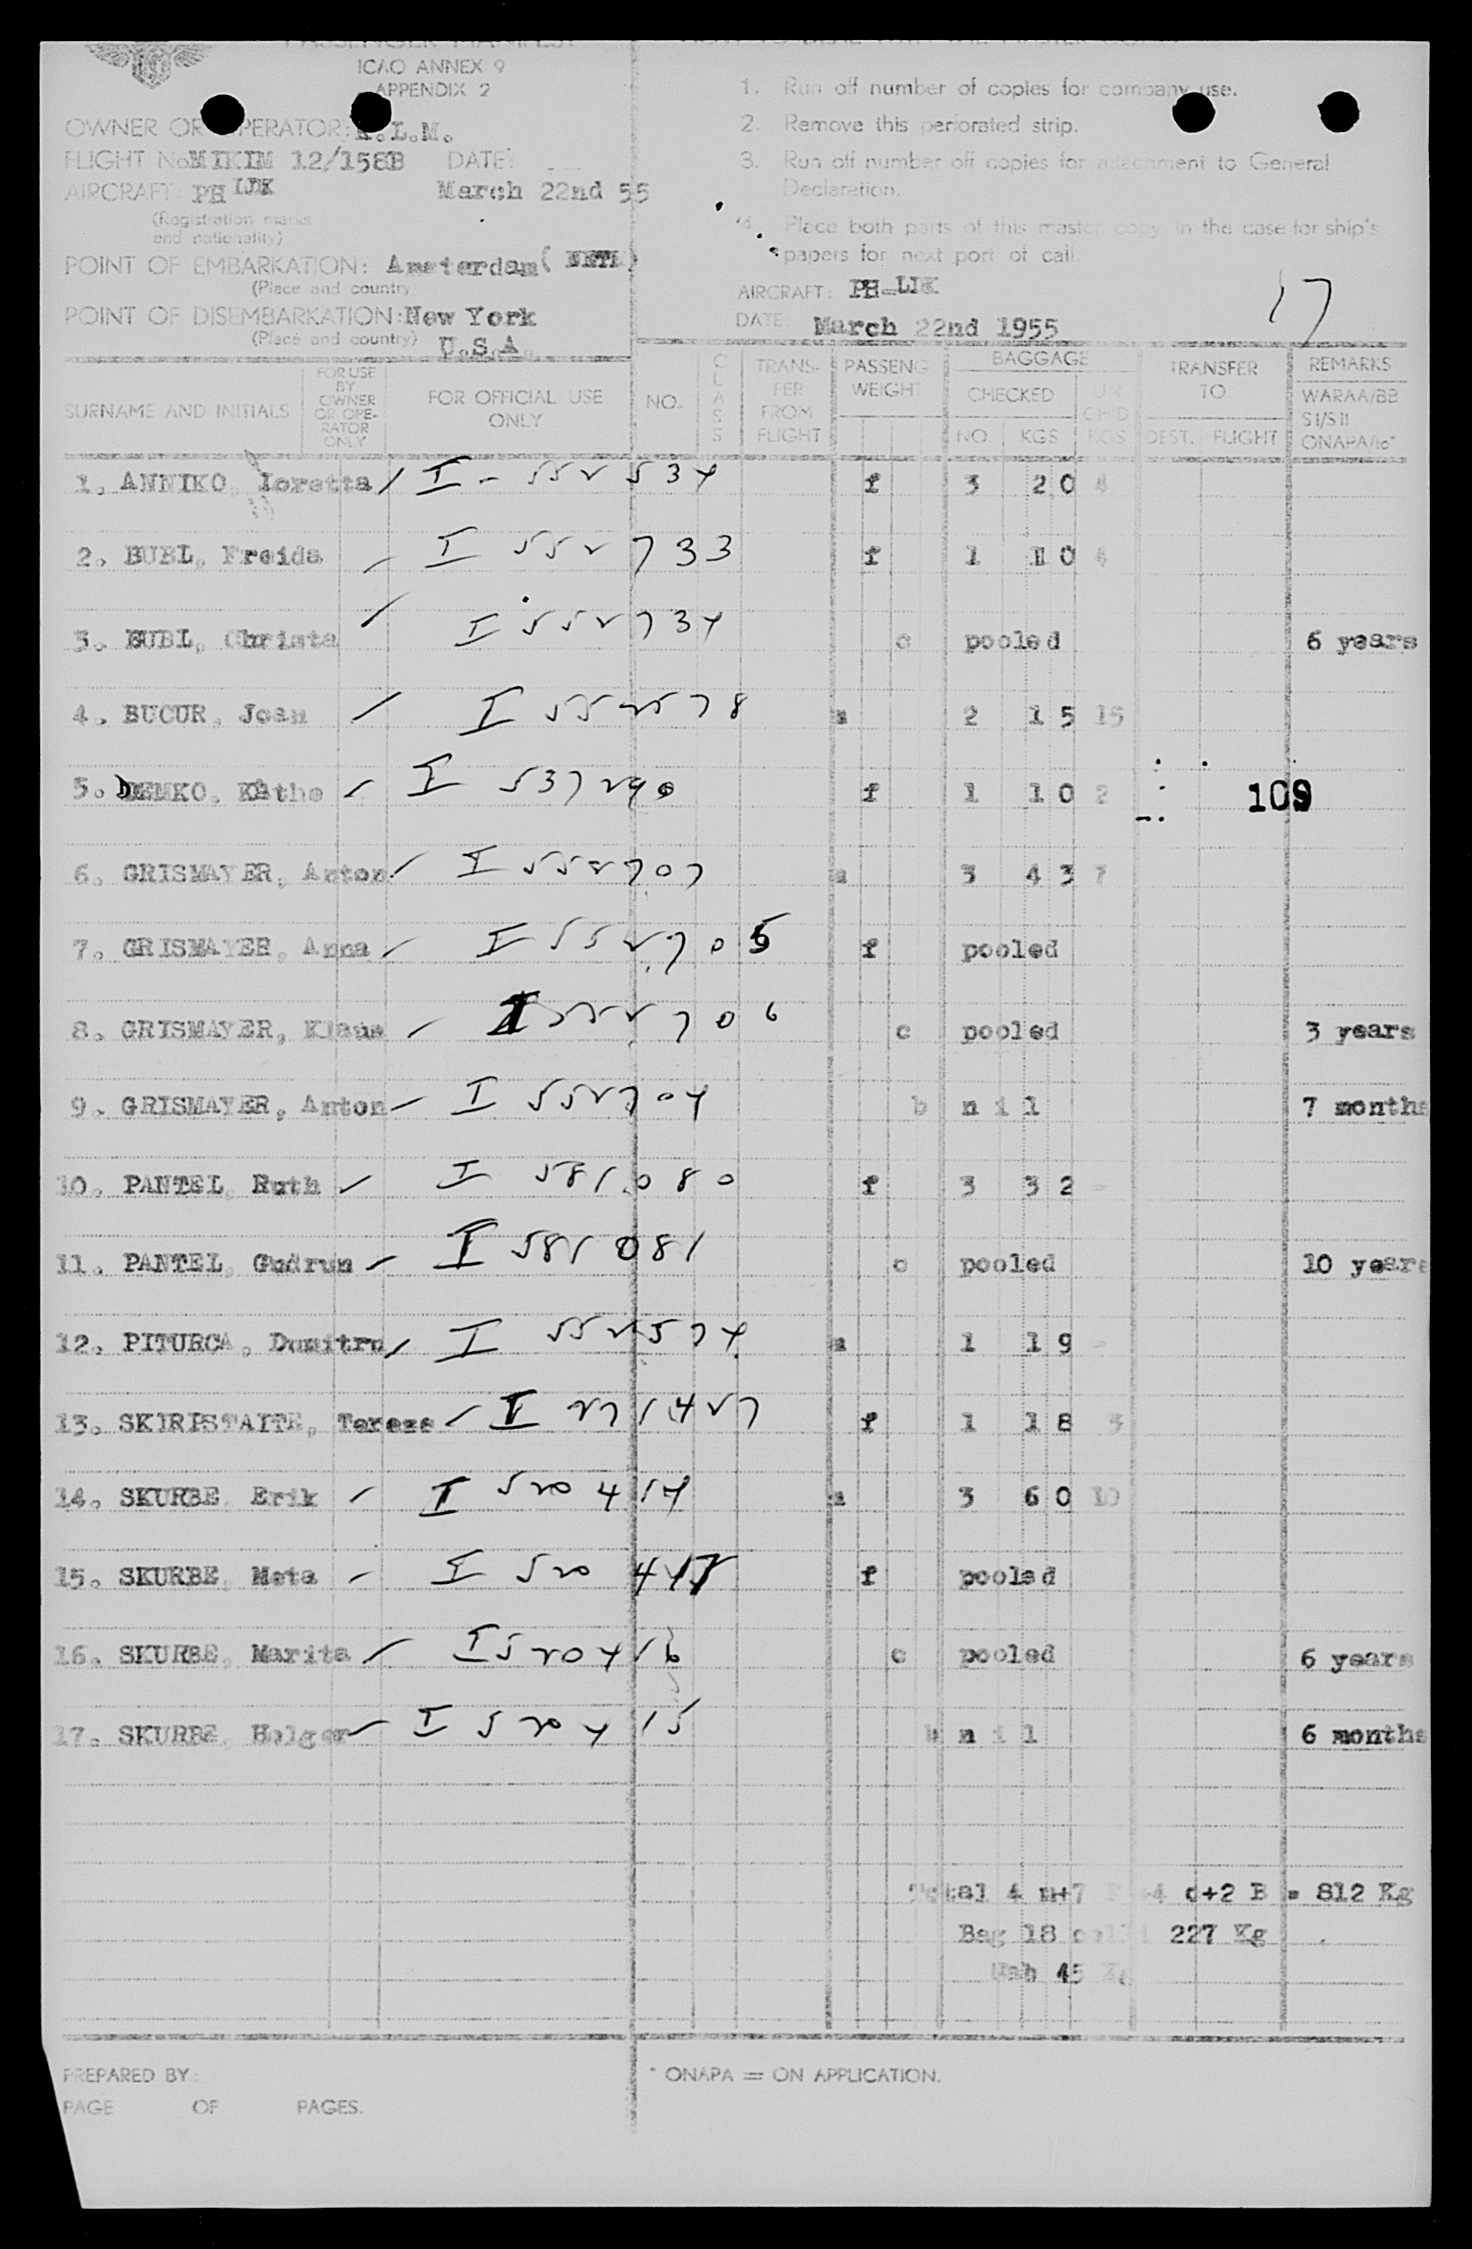 PASSENGER MANIFEST
ICAO ANNEX 9
APPENDIX 2
OWNER OR OPERATOR: K.L.M.
FLIGHT No MIKIM 12/158B DATE:
AIRCRAFT: PH LDK March 22nd 55
(Registration marks
and nationality)
POINT OF EMBARKATION: Amsterdam (NETH)
(Place and country
POINT OF DISEMBARKATION: New York
(Place and country) U.S.A.
1. Run off number of copies for company use.
2. Remove this perforated strip.
3. Run off number off copies for attachment to General
Declaration.
4. Place both parts of this master copy in the case for ship's
papers for next port of call.
AIRCRAFT: PH-LDK
DATE: March 22nd 1955
17
SURNAME AND INITIALS FOR USE BY OWNER OR OPE-RATOR ONLY FOR OFFICIAL USE ONLY NO. CLASS TRANS-FER FROM FLIGHT PASSENG WEIGHT BAGGAGE CHECKED NO. KGS UN CH'D KGS TRANSFER TO DEST. FLIGHT REMARKS WARAA/BB SI/SII ONAPA/to*
1. ANNIKO, Loretta / I - 552534 f 3 20 4
2. BUBL, Freida / I 552733 f 1 10 4
3. BUBL, Christa / I 552734 c pooled 6 years
4. BUCUR, Joan / I 552578 m 2 15 15
5. DEMKO, Käthe / I 537290 f 1 10 2 109
6. GRISMAYER, Anton / I 552707 m 3 43 7
7. GRISMAYER, Anna / I 552705 f pooled
8. GRISMAYER, Klaus / I 552706 c pooled 3 years
9. GRISMAYER, Anton / I 552704 b nil 7 months
10. PANTEL, Ruth / I 581080 f 3 32 -
11. PANTEL, Gudrun / I 581081 c pooled 10 years
12. PITURCA, Dumitru / I 552574 m 1 19 -
13. SKIRPSTAITE, Terese / I 271427 f 1 18 3
14. SKURBE, Erik / I 520414 m 3 60 10
15. SKURBE, Meta / I 520417 f pooled
16. SKURBE, Marita / I 520416 c pooled 6 years
17. SKURBE, Holger / I 520415 b nil 6 months
Total 4 m+7 F +4 c+2 B = 812 Kg
Bag 18 colli 227 Kg
Unh 45 Kg
PREPARED BY:
PAGE OF PAGES.
* ONAPA = ON APPLICATION.